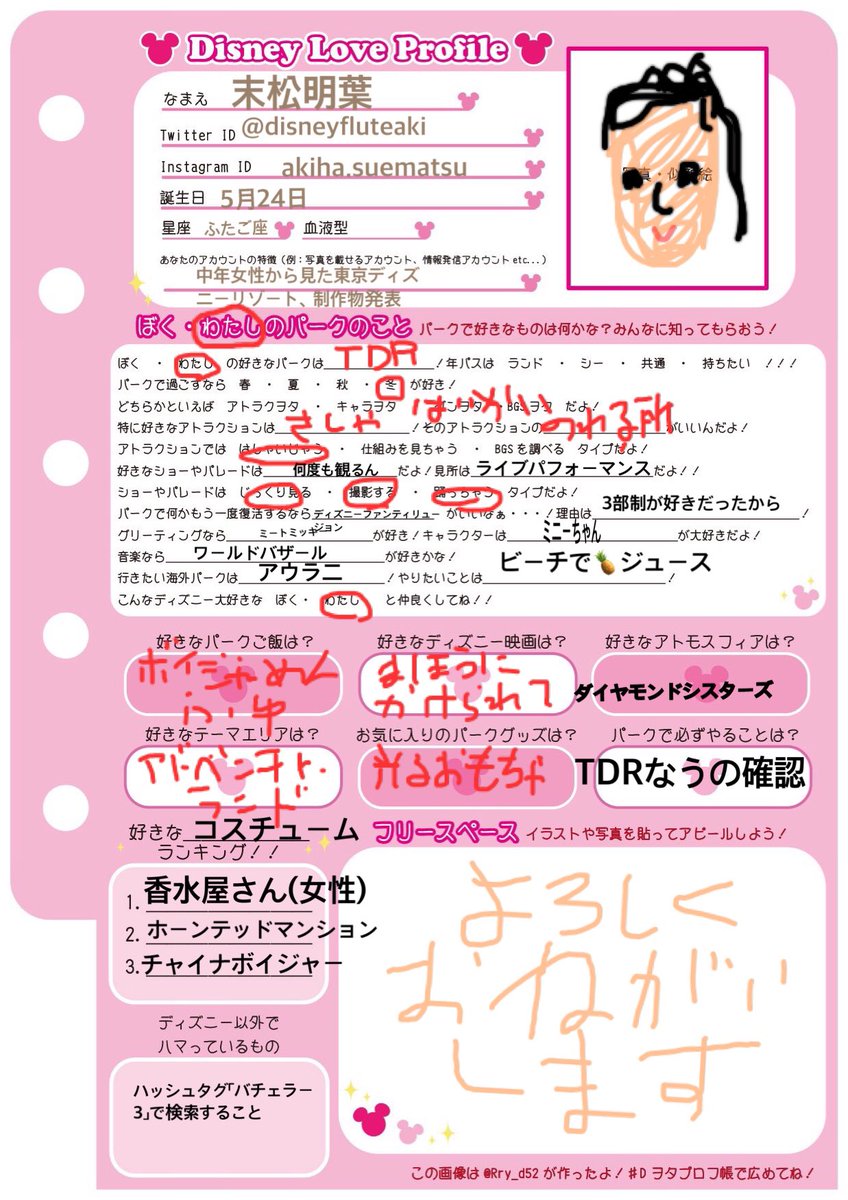 Disney Love Profile
なまえ 末松明葉
Twitter ID @disneyfluteaki
Instagram ID akiha.suematsu
誕生日 5月24日
星座 ふたご座 血液型
あなたのアカウントの特徴（例：写真を載せるアカウント、情報発信アカウントetc...）
中年女性から見た東京ディズ
ニーリゾート、制作物発表
写真・似顔絵
ぼく・わたしのパークのこと パークで好きなものは何かな？みんなに知ってもらおう！
ぼく ・ わたし の好きなパークは TDR ！年パスは ランド ・ シー ・ 共通 ・ 持ちたい ！！！
パークで過ごすなら 春 ・ 夏 ・ 秋 ・ 冬 が好き！
どちらかといえば アトラクヲタ ・ キャラヲタ ・ ダンヲタ・BGSヲタ だよ！
特に好きなアトラクションは きしゃ ！そのアトラクションの はいかい のれる所 がいいんだよ！
アトラクションでは はしゃいじゃう ・ 仕組みを見ちゃう ・ BGSを調べる タイプだよ！
好きなショーやパレードは 何度も観るん だよ！見所は ライブパフォーマンス だよ！！
ショーやパレードは じっくり見る ・ 撮影する ・ 踊っちゃう タイプだよ！
パークで何かもう一度復活するなら ディズニーファンティリュージョン がいいなぁ・・・！理由は 3部制が好きだったから ！
グリーティングなら ミートミッキー が好き！キャラクターは ミニーちゃん が大好きだよ！
音楽なら ワールドバザール が好きかな！
行きたい海外パークは アウラニ ！やりたいことは ビーチで🍍ジュース ！
こんなディズニー大好きな ぼく・ わたし と仲良くしてね！！
好きなパークご飯は？ 好きなディズニー映画は？ 好きなアトモスフィアは？
まほうに
かけられて
ダイヤモンドシスターズ
好きなテーマエリアは？ お気に入りのパークグッズは？ パークで必ずやることは？
アドベンチャー
ランド
光るおもちゃ
TDRなうの確認
好きな コスチューム
ランキング！！
フリースペース イラストや写真を貼ってアピールしよう！
1. 香水屋さん(女性)
2. ホーンテッドマンション
3. チャイナボイジャー
よろしく
おねがい
します
ディズニー以外で
ハマっているもの
ハッシュタグ「バチェラー
3」で検索すること
この画像は @Rry_d52 が作ったよ！♯Dヲタプロフ帳で広めてね！